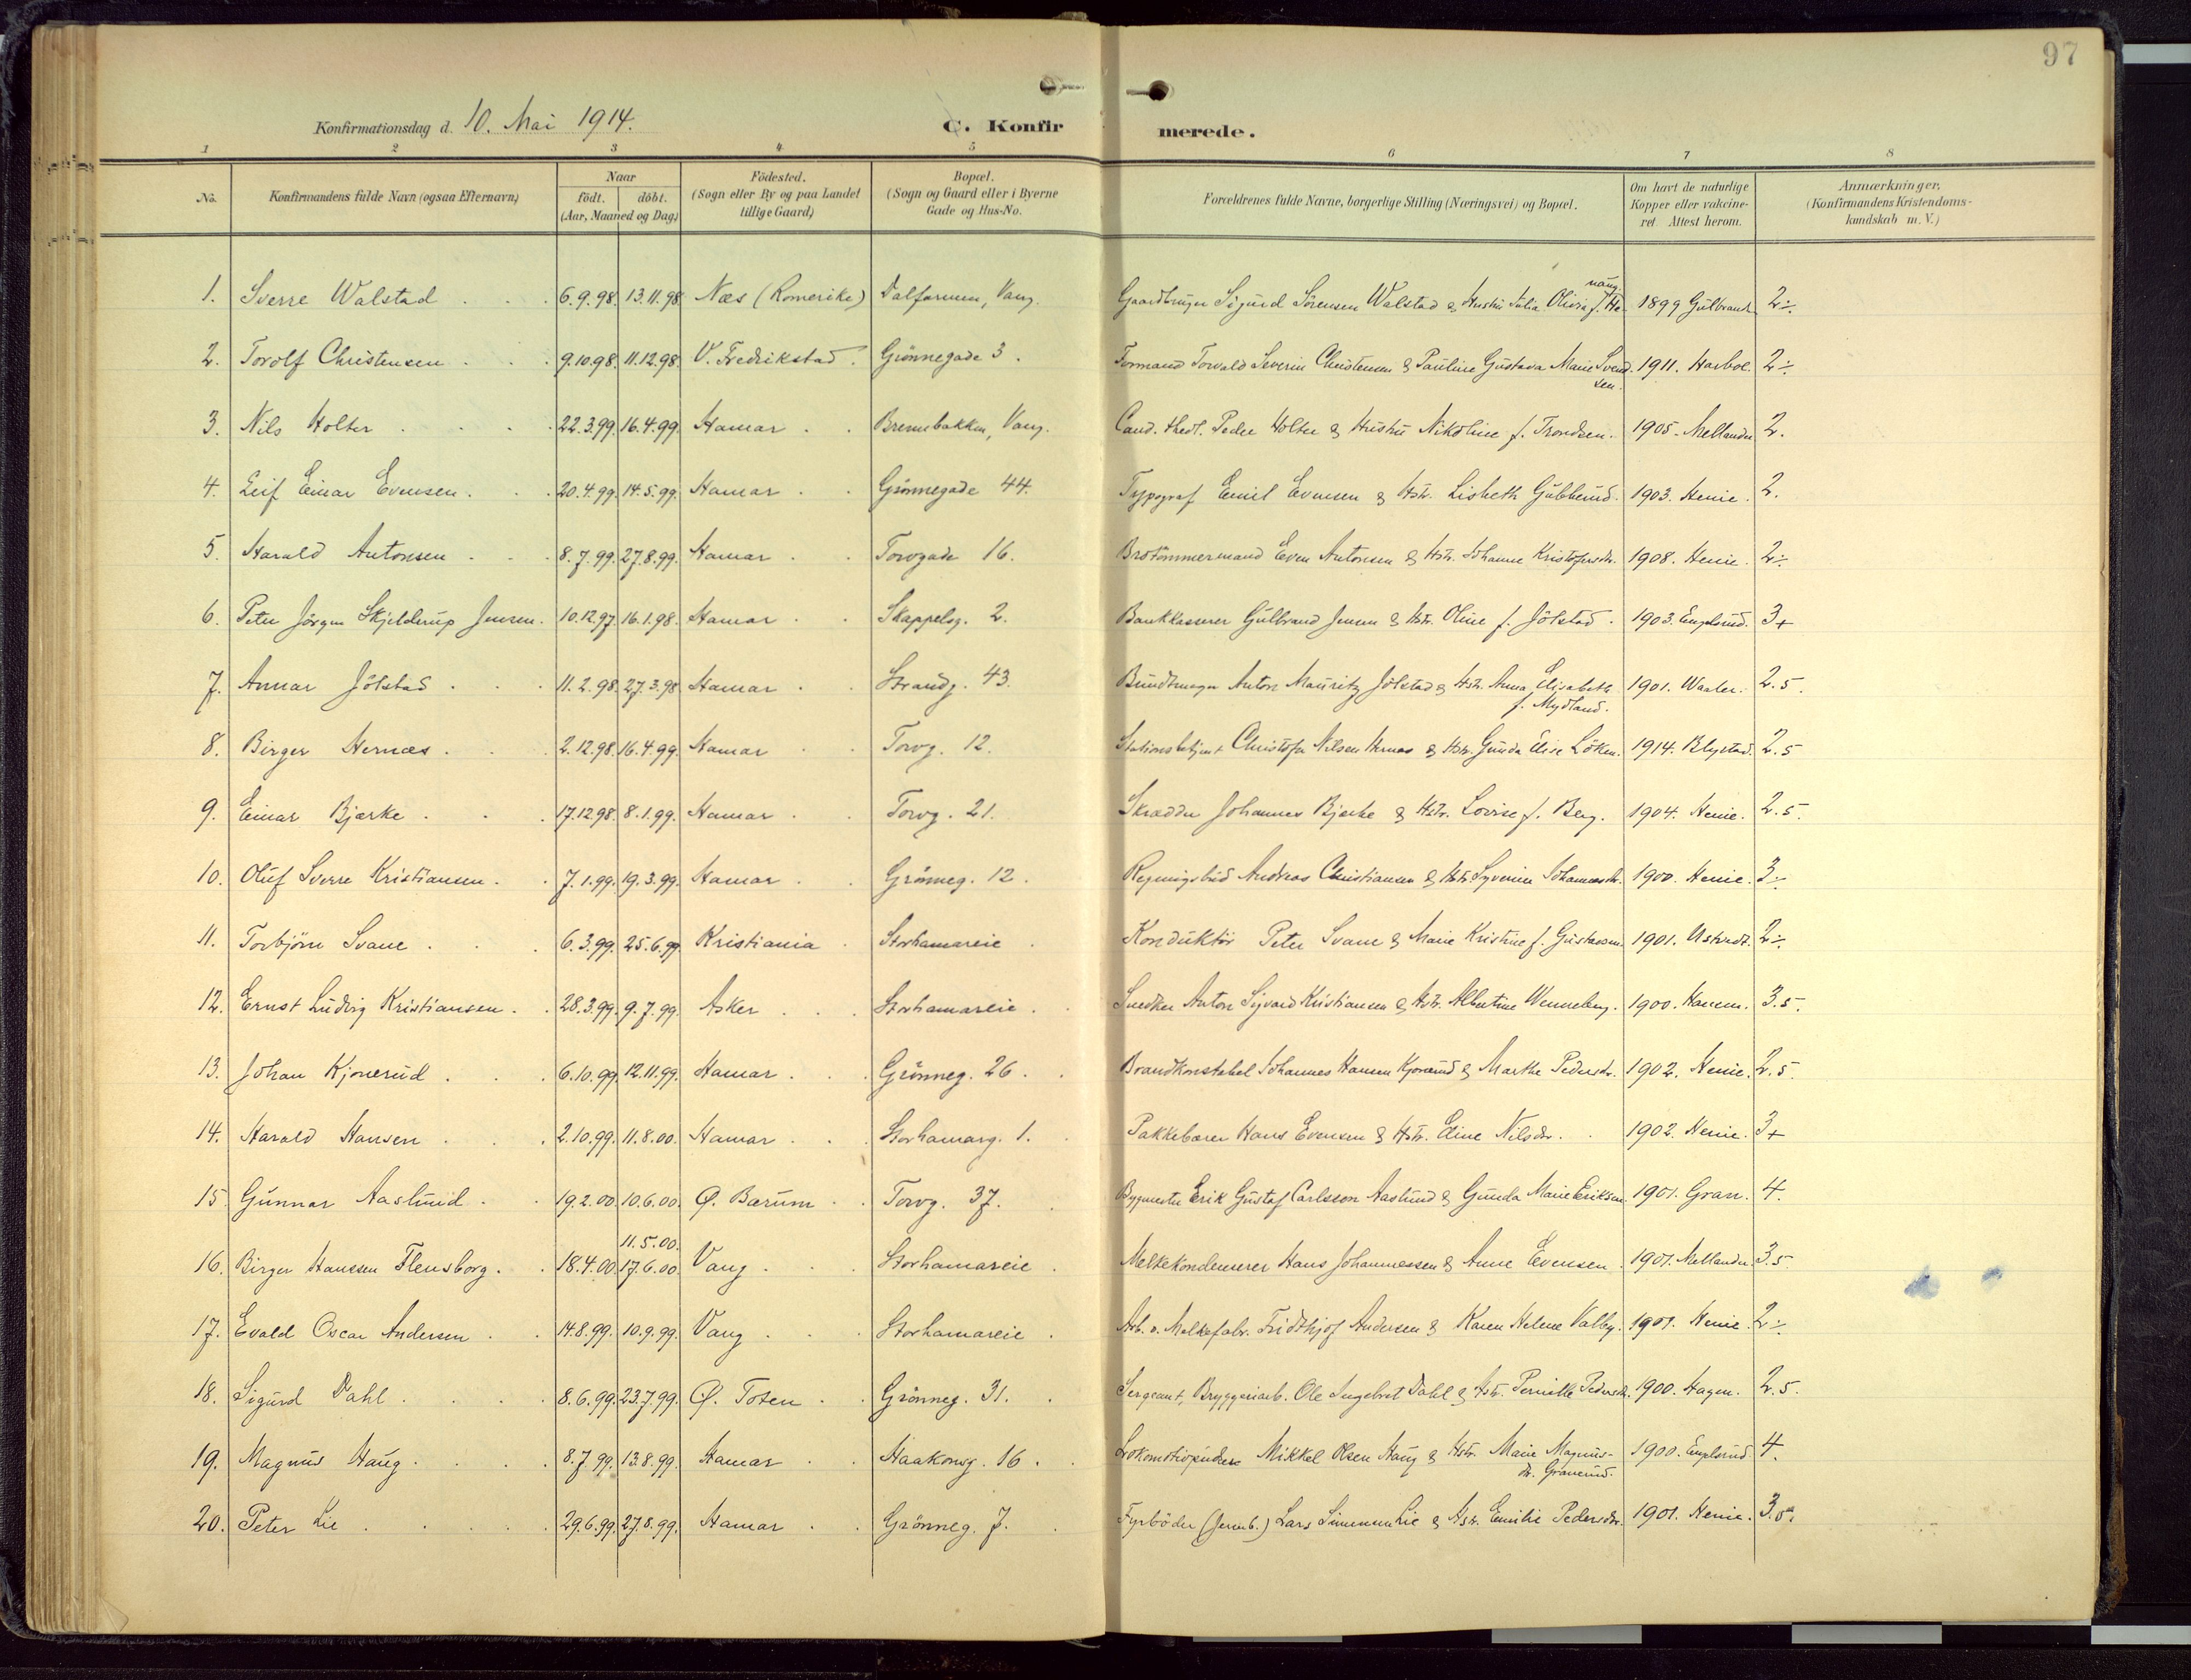 97
Konfirmationsdag d. 10. Mai 1914. C. Konfirmerede.
1 2 3 4 5 6 7 8
No. Konfirmandens fulde Navn (ogsaa Efternavn) Naar födt. döbt. (Aar, Maaned og Dag) Födested. (Sogn eller By og paa Landet tillige Gaard) Bopæl. (Sogn og Gaard eller i Byerne Gade og Hus-No. Forældrenes fulde Navne, borgerlige Stilling (Næringsvei) og Bopæl. Om havt de naturlige Kopper eller vakcineret. Attest herom. Anmærkninger. (Konfirmandens Kristendomskundskab m. V.)
1. Sverre Walstad 6.9.98. 13.11.98 Næs (Romerike) Dalfarmen, Vang. Gaardbruger Sigurd Sörensen Walstad & Hustru Julia Olivia f. Haug. 1899 Gulbrand 2÷.
2. Torolf Christensen 9.10.98. 11.12.98. V. Fredrikstad. Grönnegade 3. Formand Torvald Severin Christensen & Pauline Gustava Marie Svendsen. 1911. Harboe. 2÷
3. Nils Holter 22.3.99. 16.4.99. Hamar Brennebakken, Vang. Cand. theol. Peder Holter & Hustru Nikoline f. Trondsen. 1905. Mellander 2.
4. Leif Einar Evensen. 20.4.99. 14.5.99. Hamar Grönnegade 44. Typograf Emil Evensen & Hstr. Lisbeth Gubberud. 1903. Henie. 2.
5. Harald Antonsen 8.7.99. 27.8.99. Hamar Torvgade 16. Brotömmermand Even Antonsen & Hstr. Johanne Kristofersdr. 1908. Henie. 2÷
6. Peter Jörgen Skjelderup Jensen. 10.12.97. 16.1.98. Hamar Skappelsg. 2. Bankkasserer Gulbrand Jensen & Hstr. Oline f. Jölstad. 1903. Englsrud. 3+
7. Annar Jölstad 11.2.98. 27.3.98. Hamar Strandg. 43. Bundtmager Anton Mauritz Jölstad & Hstr. Anna Elisabeth f. Mydland. 1901. Waaler. 2.5.
8. Birger Hernæs. 2.12.98. 16.4.99. Hamar Torvg. 12. Stationsbetjent Christofer Nilsen Hernæs & Hstr. Gunda Elise Löken. 1914. Blystad. 2.5
9. Einar Bjerke 17.12.98. 8.1.99. Hamar Torvg. 21. Skrædder Johannes Bjerke & Hstr. Lovise f. Berg. 1904. Henie. 2.5.
10. Oluf Sverre Kristiansen. 7.1.99. 19.3.99. Hamar Grönneg. 12. Regningsbud Andreas Christiansen & Hstr. Syverine Johannesdr. 1900. Henie. 3÷
11. Torbjörn Svane 6.3.99. 25.6.99. Kristiania Storhamareie. Konduktör Peter Svane & Marie Kristine f. Gustavsen. 1901. Ustvedt. 2÷.
12. Ernst Ludvig Kristiansen. 28.3.99. 9.7.99. Asker Storhamareie. Snedker Anton Sigvard Kristiansen & Hstr. Albertine Wenneberg. 1900. Hansen. 3.5.
13. Johan Kjonerud 6.10.99. 12.11.99. Hamar Grönneg. 26. Brandkonstabel Johannes Hansen Kjonerud & Marthe Pedersdr. 1902. Henie. 2.5.
14. Harald Hansen 2.10.99. 11.8.00. Hamar Storhamarg. 1. Pakkebærer Hans Evensen & Hstr. Eline Nilsdr. 1902. Henie. 3+
15 Gunnar Aaslund. 19.2.00. 10.6.00. Ø. Bærum Torvg. 37. Bygmester Erik Gustaf Carlsson Aaslund & Gunda Marie Eriksen. 1901. Gran. 4.
11.5.00.
16. Birger Hanssen Flensborg. 18.4.00. 17.6.00. Vang Storhamareie. Melkekondenserer Hans Johannessen & Anne Evensen. 1901. Mellander. 3.5.
17. Evald Oscar Andersen 14.8.99. 10.9.99. Vang Storhamareie. Arb. v. Melkefabr. Fridthjof Andersen & Karen Helene Valby. 1901. Henie. 2÷
18. Sigurd Dahl 8.6.99. 23.7.99. Ø. Toten Grönneg. 31. Sergeant, Bryggeriarb. Ole Ingebret Dahl & Hstr. Pernille Pedersdr. 1900. Hagen. 2.5.
19. Magnus Haug 8.7.99. 13.8.99. Hamar Haakonsg. 16. Lokomotivpudser Mikkel Olsen Haug & Hstr. Marie Magnusdr. Granerud. 1900. Englsrud 4.
20. Peter Lie 29.6.99. 27.8.99. Hamar Grönneg. 7. Fyrböder (Jernb.) Lars Simensen Lie & Hstr. Emilie Pedersdr. 1901. Henie. 3.5.